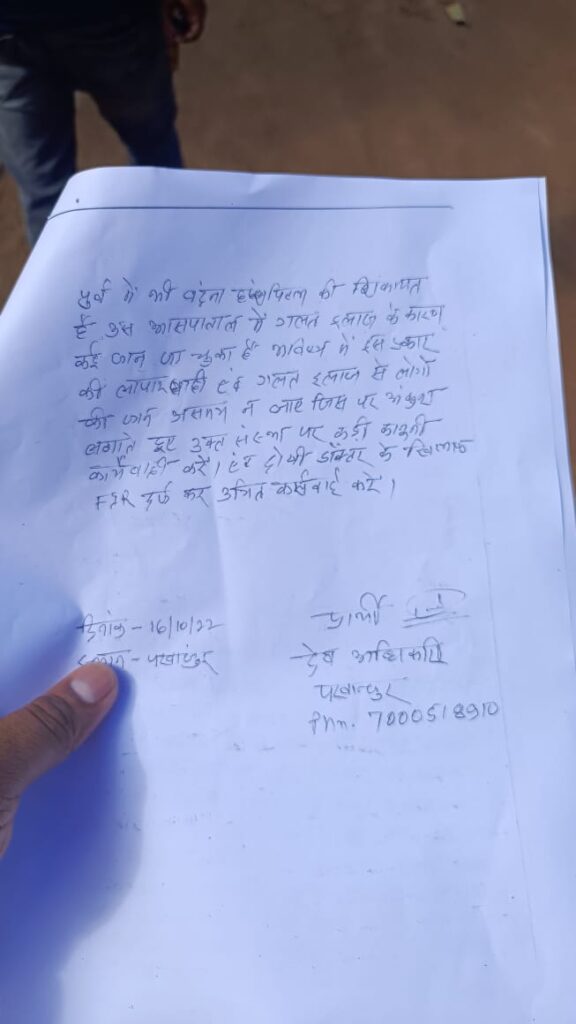 पुर्व में भी वंदना हॉस्पिटल की शिकायत
है उस अस्पताल में गलत इलाज के कारण
कई जान जा चुका है भविष्य में इस प्रकार
की लापरवाही एवं गलत इलाज से लोगों
की जान असमय न जाए जिस पर अंकुश
लगाते हुए उक्त संस्था पर कड़ी कानूनी
कार्यवाही करें। एवं दोषी डॉक्टर के खिलाफ
FIR दर्ज कर उचित कार्यवाई करें।
दिनांक - 16/10/22
स्थान - पखांजुर
प्रार्थी
देब अधिकारी
पखान्जुर
Phn. 7000518910